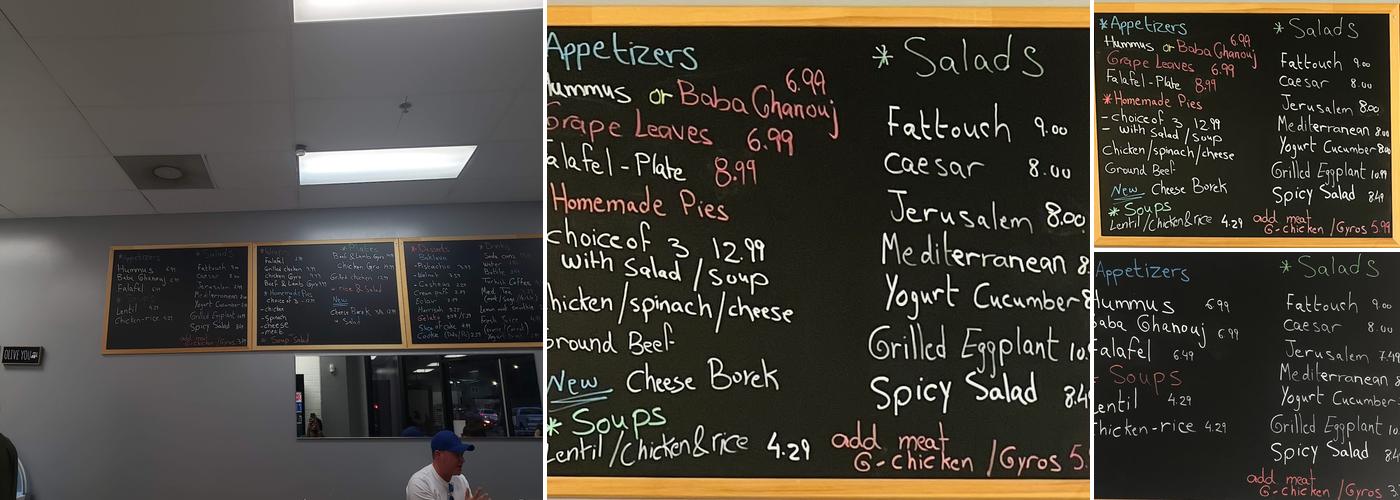 OLIVE YOU
Appetizers
Hummus 6.99
Baba Ghanouj 6.99
Falafel
Lentil 4.29
Chicken-rice 4.29
Salads
Fattouch
Caesar
Jerusalem
Mediterranean
Yogurt Cucumber
Grilled Eggplant
Spicy Salad
add meat
G-chicken/Gyros
*Plates
Falafel
Grilled chicken
Chicken Gyro
Beef & Lamb Gyro
*Homemade Pies
- choice of 3
- chicken
- Spinach
- cheese
- meat
Beef & Lamb Gyro
Chicken Gyro
Grilled chicken
- rice & Salad
New
Cheese Borek
*Desserts
Baklava
-Pistachios
-Walnut
-Cashews
Cream puff
Eclair
Harissa
Slice of cake
Drinks
Turkish Coffee
Appetizers
Hummus or Baba Ghanouj 6.99
Grape Leaves 6.99
Falafel-Plate 8.99
Homemade Pies
choice of 3 12.99
with Salad/Soup
Chicken/spinach/cheese
Ground Beef
New Cheese Borek
* Soups
Lentil/Chicken&rice 4.29
* Salads
Fattouch 9.00
Caesar 8.00
Jerusalem 8.00
Mediterranean 8.
Yogurt Cucumber 8
Grilled Eggplant 10.9
Spicy Salad 8.49
add meat
G-chicken /Gyros 5.
*Appetizers
Hummus or Baba Ghanouj 6.99
Grape Leaves 6.99
Falafel-Plate 8.99
*Homemade Pies
-choice of 3 12.99
- with Salad/Soup
Chicken/spinach/cheese
Ground Beef
New Cheese Borek
* Soups
Lentil/Chicken&rice 4.29
*Salads
Fattouch 9.00
Caesar 8.00
Jerusalem 8.00
Mediterranean 8.00
Yogurt Cucumber 8.00
Grilled Eggplant 10.99
Spicy Salad 8.49
add meat
G-chicken/Gyros 5.99
Appetizers
Hummus 6.99
Baba Ghanouj 6.99
Falafel 6.49
Soups
Lentil 4.29
Chicken-rice 4.29
*Salads
Fattouch 9.00
Caesar 8.00
Jerusalem 7.49
Mediterranean 8
Yogurt Cucumber
Grilled Eggplant 10
Spicy Salad 8.4
add meat
G-chicken/Gyros 3